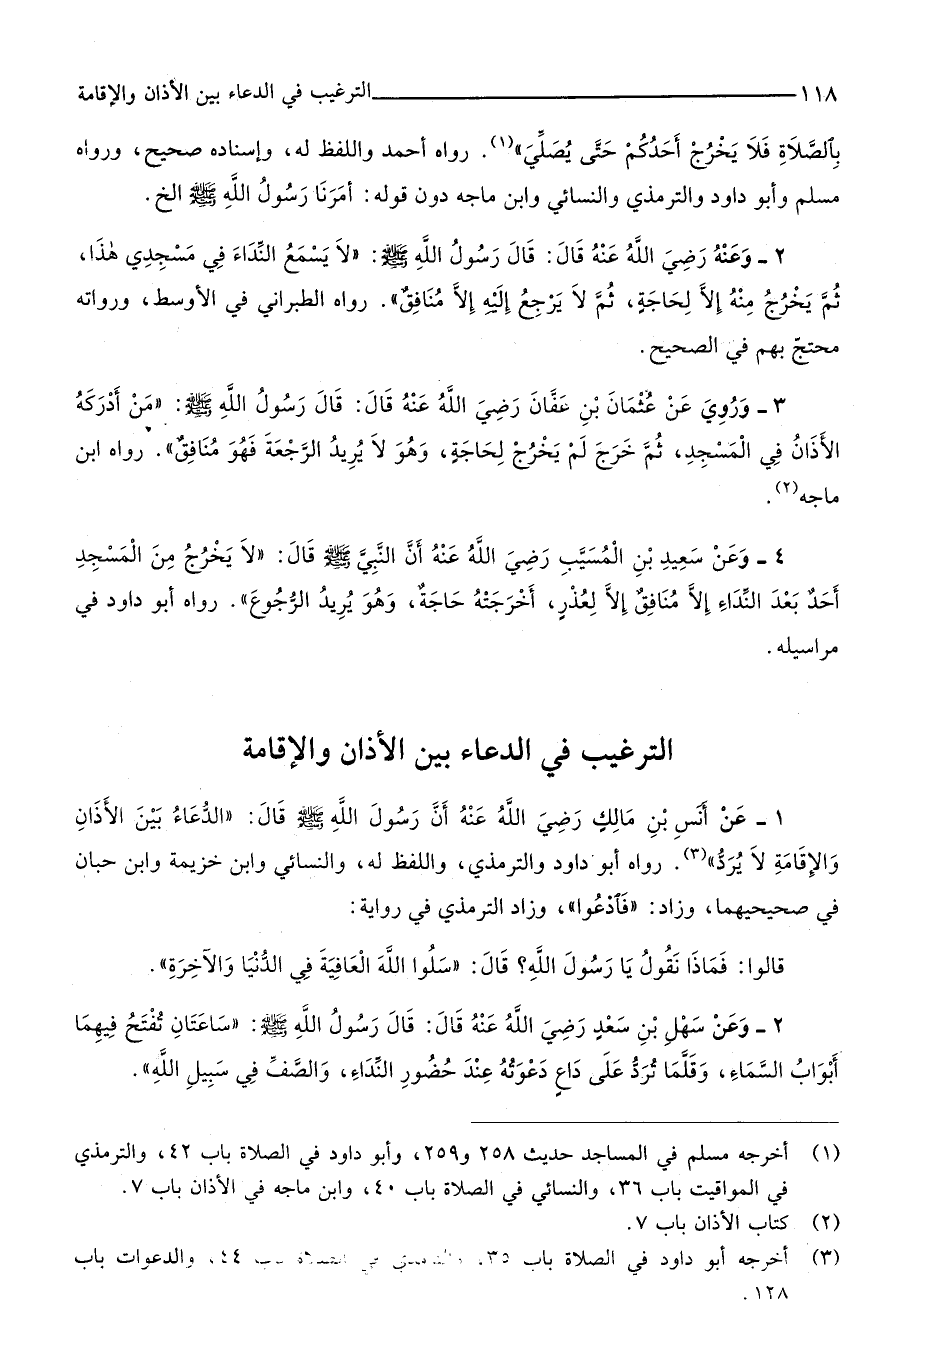 ١١٨ ـــــــــــــــــــــــــــــــــ الترغيب في الدعاء بين الأذان والإقامة
بِٱلصَّلَاةِ فَلَا يَخْرُجْ أَحَدُكُمْ حَتَّى يُصَلِّيَ»(١). رواه أحمد واللفظ له، وإسناده صحيح، ورواه
مسلم وأبو داود والترمذي والنسائي وابن ماجه دون قوله: أمَرَنَا رَسُولُ اللَّهِ ﷺ الخ.
٢ ـ وَعَنْهُ رَضِيَ اللَّهُ عَنْهُ قَالَ: قَالَ رَسُولُ اللَّهِ ﷺ: «لاَ يَسْمَعُ النِّدَاءَ فِي مَسْجِدِي هٰذَا،
ثُمَّ يَخْرُجُ مِنْهُ إِلاَّ لِحَاجَةٍ، ثُمَّ لاَ يَرْجِعُ إِلَيْهِ إِلاَّ مُنَافِقٌ». رواه الطبراني في الأوسط، ورواته
محتجّ بهم في الصحيح.
٣ ـ وَرُوِيَ عَنْ عُثْمَانَ بْنِ عَفَّانَ رَضِيَ اللَّهُ عَنْهُ قَالَ: قَالَ رَسُولُ اللَّهِ ﷺ: «مَنْ أَدْرَكَهُ
الأَذَانُ فِي الْمَسْجِدِ، ثُمَّ خَرَجَ لَمْ يَخْرُجْ لِحَاجَةٍ، وَهُوَ لاَ يُرِيدُ الرَّجْعَةَ فَهُوَ مُنَافِقٌ». رواه ابن
ماجه(٢).
٤ ـ وَعَنْ سَعِيدِ بْنِ الْمُسَيَّبِ رَضِيَ اللَّهُ عَنْهُ أَنَّ النَّبِيَّ ﷺ قَالَ: «لاَ يَخْرُجُ مِنَ الْمَسْجِدِ
أَحَدٌ بَعْدَ النِّدَاءِ إِلاَّ مُنَافِقٌ إِلاَّ لِعُذْرٍ، أَخْرَجَتْهُ حَاجَةٌ، وَهُوَ يُرِيدُ الرُّجُوعَ». رواه أبو داود في
مراسيله.
الترغيب في الدعاء بين الأذان والإقامة
١ ـ عَنْ أَنَسِ بْنِ مَالِكٍ رَضِيَ اللَّهُ عَنْهُ أَنَّ رَسُولَ اللَّهِ ﷺ قَالَ: «الدُّعَاءُ بَيْنَ الأَذَانِ
وَالإِقَامَةِ لاَ يُرَدُّ»(٣). رواه أبو داود والترمذي، واللفظ له، والنسائي وابن خزيمة وابن حبان
في صحيحيهما، وزاد: «فَٱدْعُوا»، وزاد الترمذي في رواية:
قالوا: فَمَاذَا نَقُولُ يَا رَسُولَ اللَّهِ؟ قَالَ: «سَلُوا اللَّهَ الْعَافِيَةَ فِي الدُّنْيَا وَالآخِرَةِ».
٢ ـ وَعَنْ سَهْلِ بْنِ سَعْدٍ رَضِيَ اللَّهُ عَنْهُ قَالَ: قَالَ رَسُولُ اللَّهِ ﷺ: «سَاعَتَانِ تُفْتَحُ فِيهِمَا
أَبْوَابُ السَّمَاءِ، وَقَلَّمَا تُرَدُّ عَلَى دَاعٍ دَعْوَتُهُ عِنْدَ حُضُورِ النِّدَاءِ، وَالصَّفِّ فِي سَبِيلِ اللَّهِ».
(١) أخرجه مسلم في المساجد حديث ٢٥٨ و٢٥٩، وأبو داود في الصلاة باب ٤٢، والترمذي
في المواقيت باب ٣٦، والنسائي في الصلاة باب ٤٠، وابن ماجه في الأذان باب ٧.
(٢) كتاب الأذان باب ٧.
(٣) أخرجه أبو داود في الصلاة باب ٣٥، والترمذي في الصلاة باب ٤٤، والدعوات باب
١٢٨.